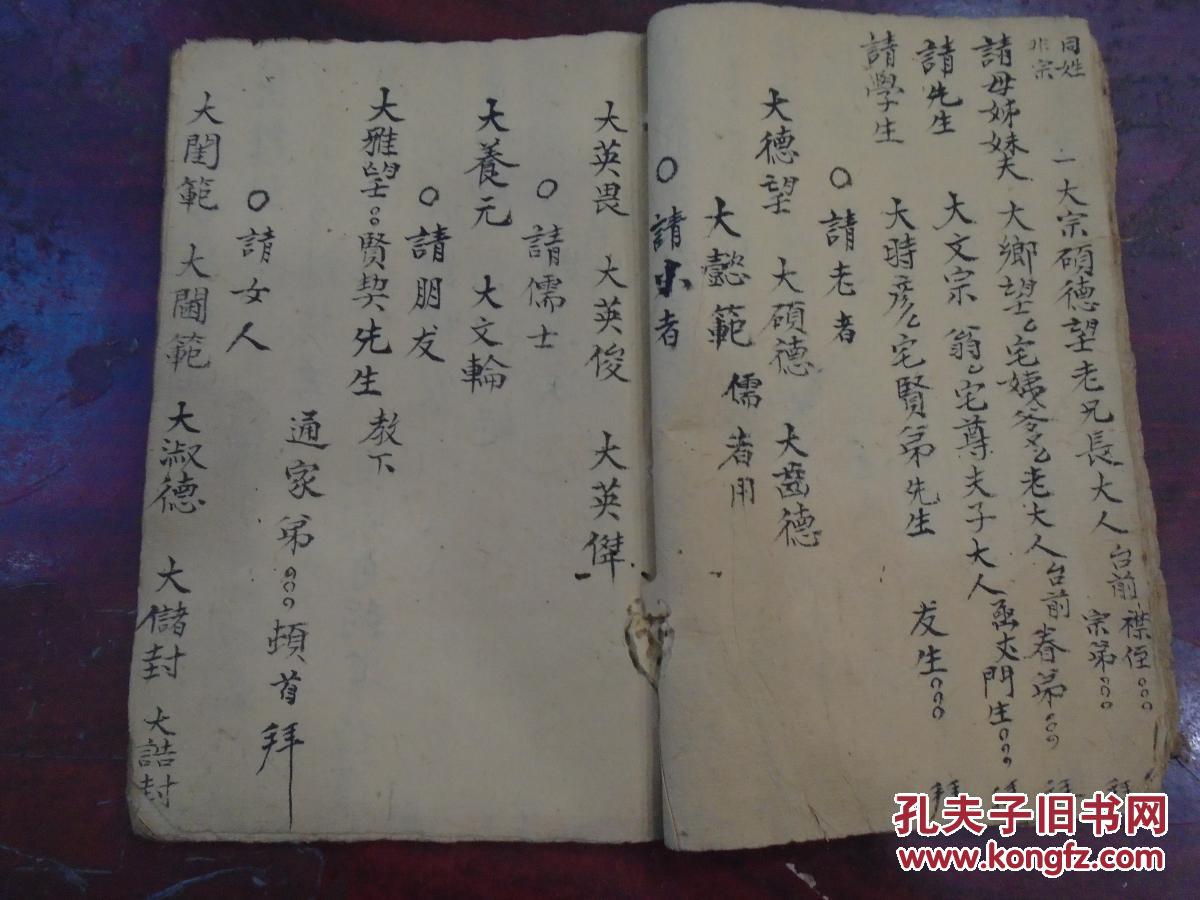 同姓
非宗
一大宗碩德望老兄長大人台前 襟侄○○○
宗弟○○○
拜
請母姊妹夫 大鄉望〻宅姨爷〻老大人台前 眷弟○○○
請先生 大文宗 翁〻宅尊夫子大人 門生○○○
請學生 大時彦〻宅賢弟先生 友生○○○
○請老者
大德望 大碩德 大齒德
大懿範 儒者用
○請少者
大英畏 大英俊 大英傑
○請儒士
大養元 大文輪
○請朋友
大雅望○○賢契先生 教下
通家弟○○○頓首拜
○請女人
大閨範 大閫範 大淑德 大儲封 大誥封
孔夫子旧书网
www.kongfz.com